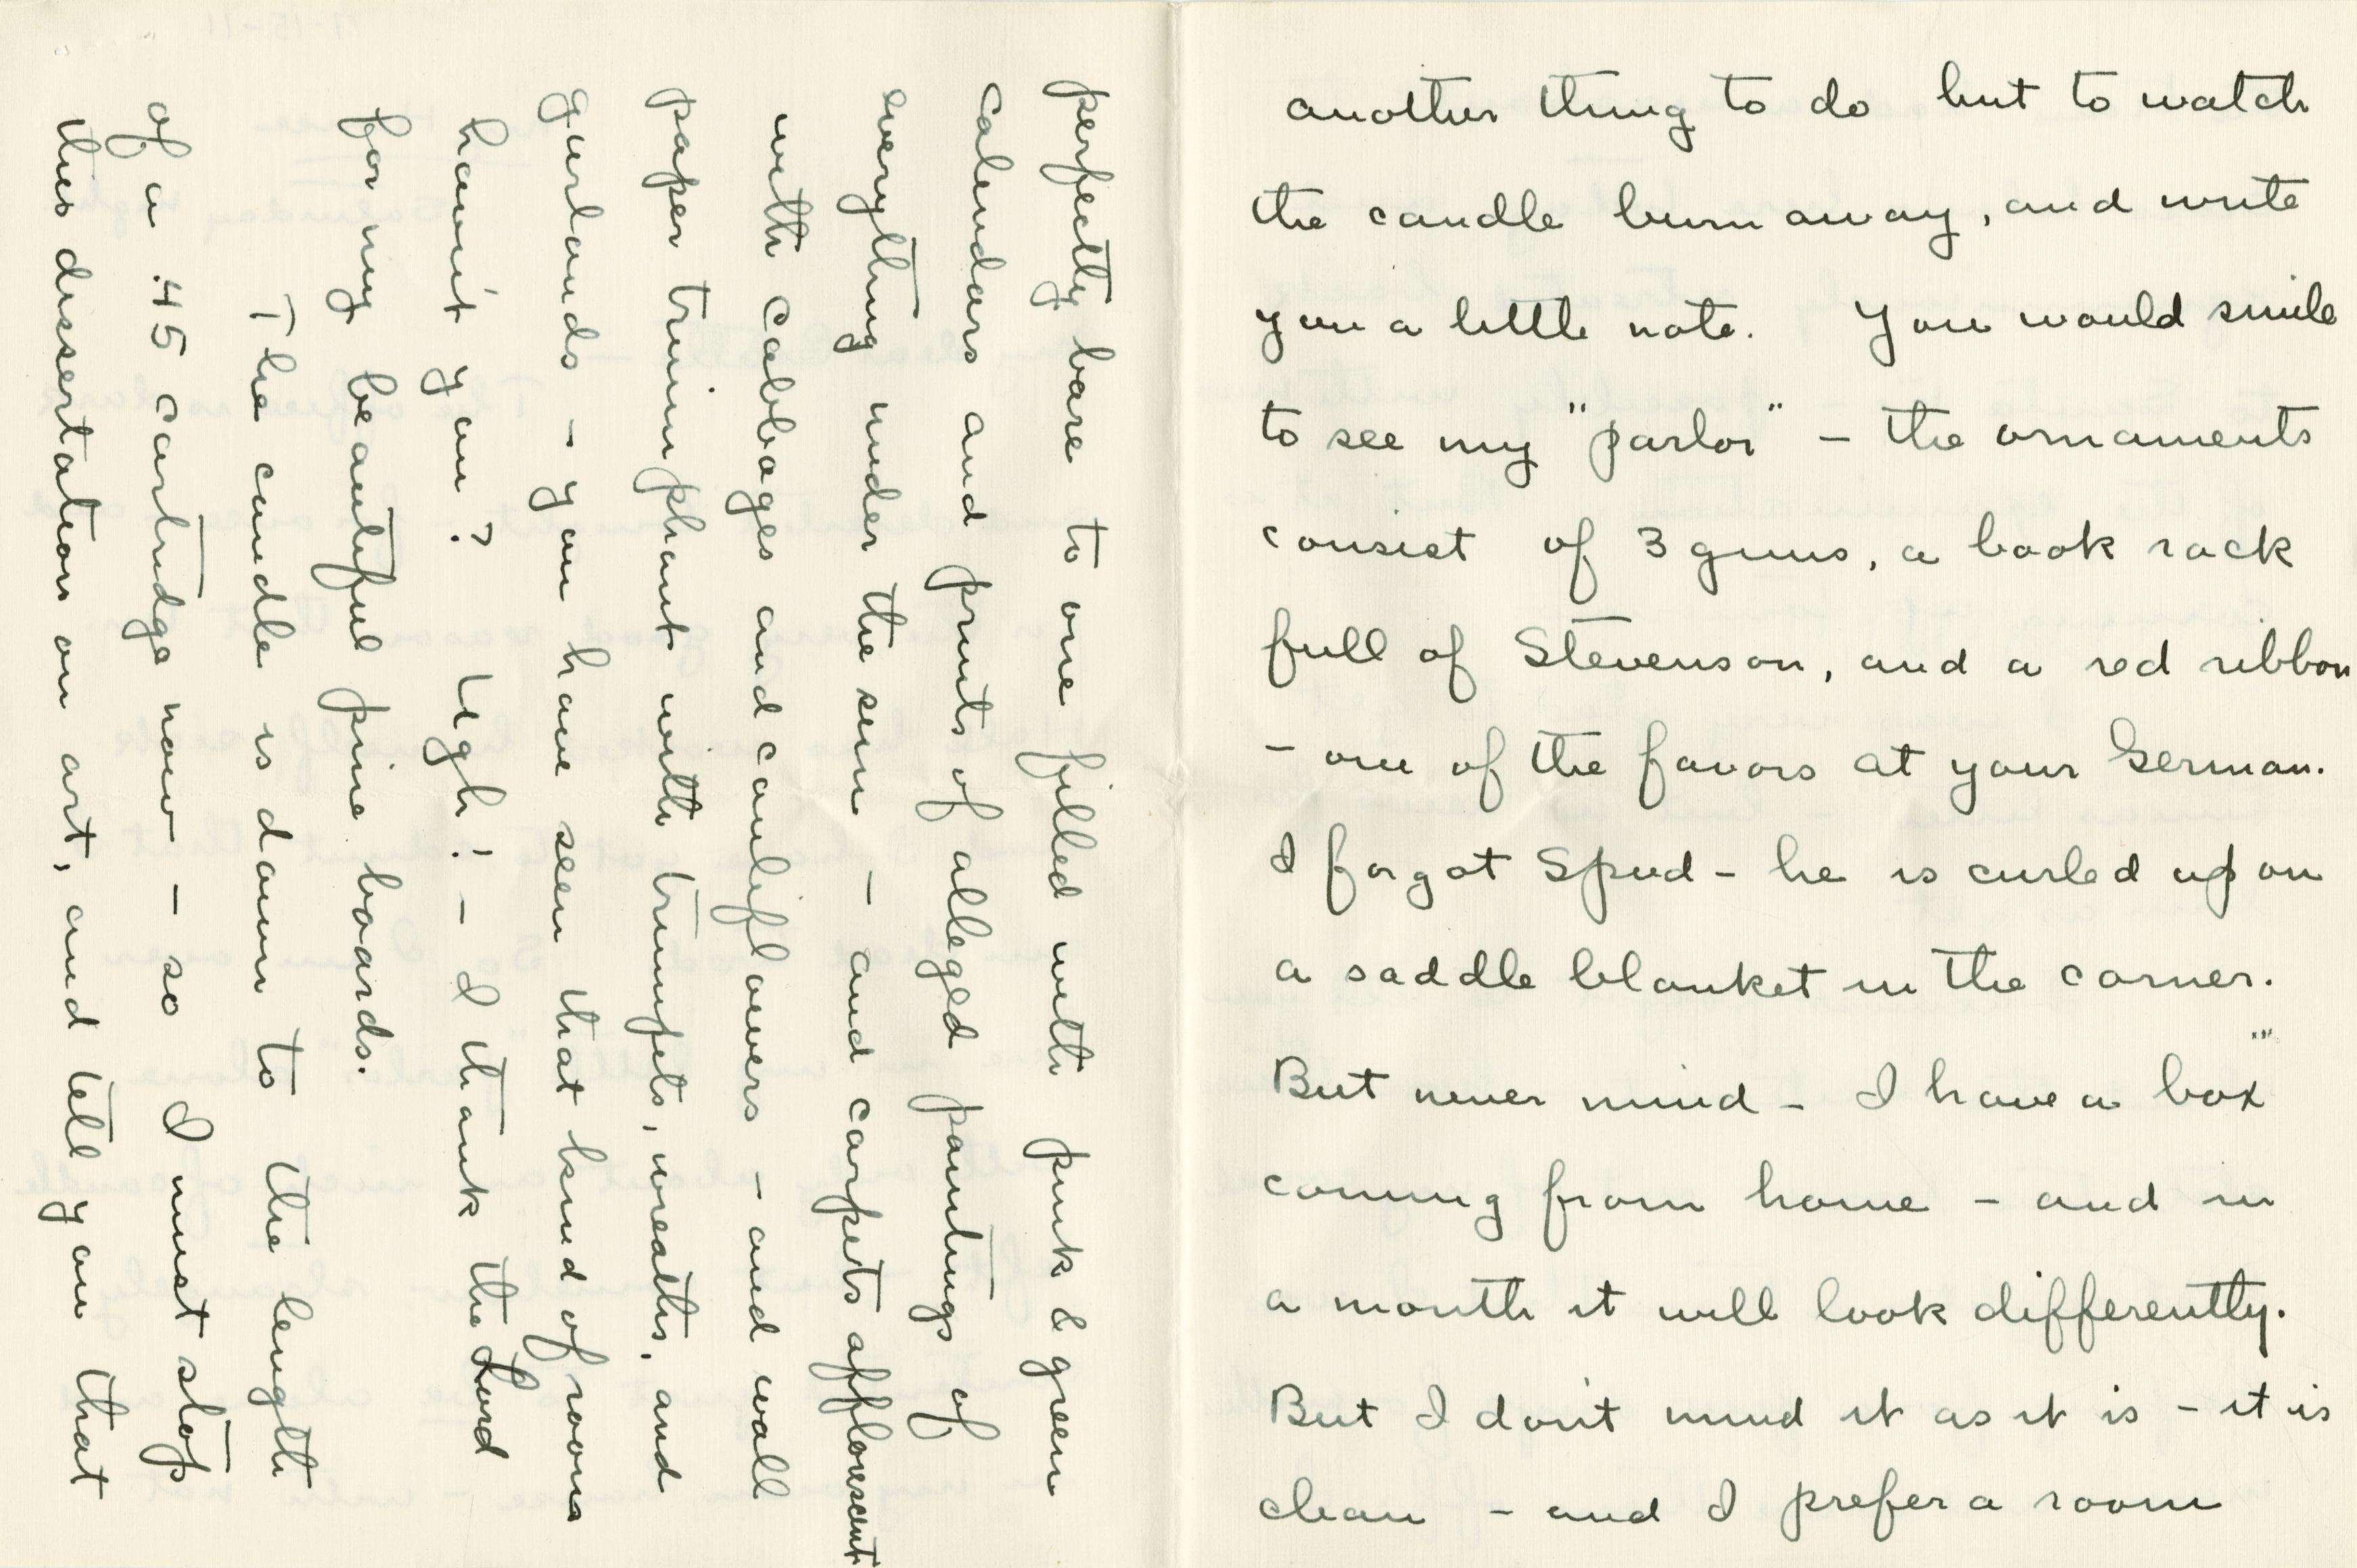 another thing to do but to watch
the candle burn away, and write
you a little note. You would smile
to see my "parlor" – the ornaments
consist of 3 guns, a book rack
full of Stevenson, and a red ribbon
– one of the favors at your German.
I forgot Spud – he is curled up on
a saddle blanket in the corner.
But never mind – I have a box
coming from home – and in
a month it will look differently.
But I don't mind it as it is – it is
clean – and I prefer a room
perfectly bare to one filled with pink & green
calendars and prints of alleged paintings of
everything under the sun – and carpets afflorescent
with cabbages and cauliflowers – and wall
paper triumphant with trumpets, wreaths, and
garlands – you have seen that kind of rooms
havn't you? Ugh! – I thank the Lord
for my beautiful pine boards.
The candle is down to the length
of a .45 cartridge now – so I must stop
this dissertation on art, and tell you that